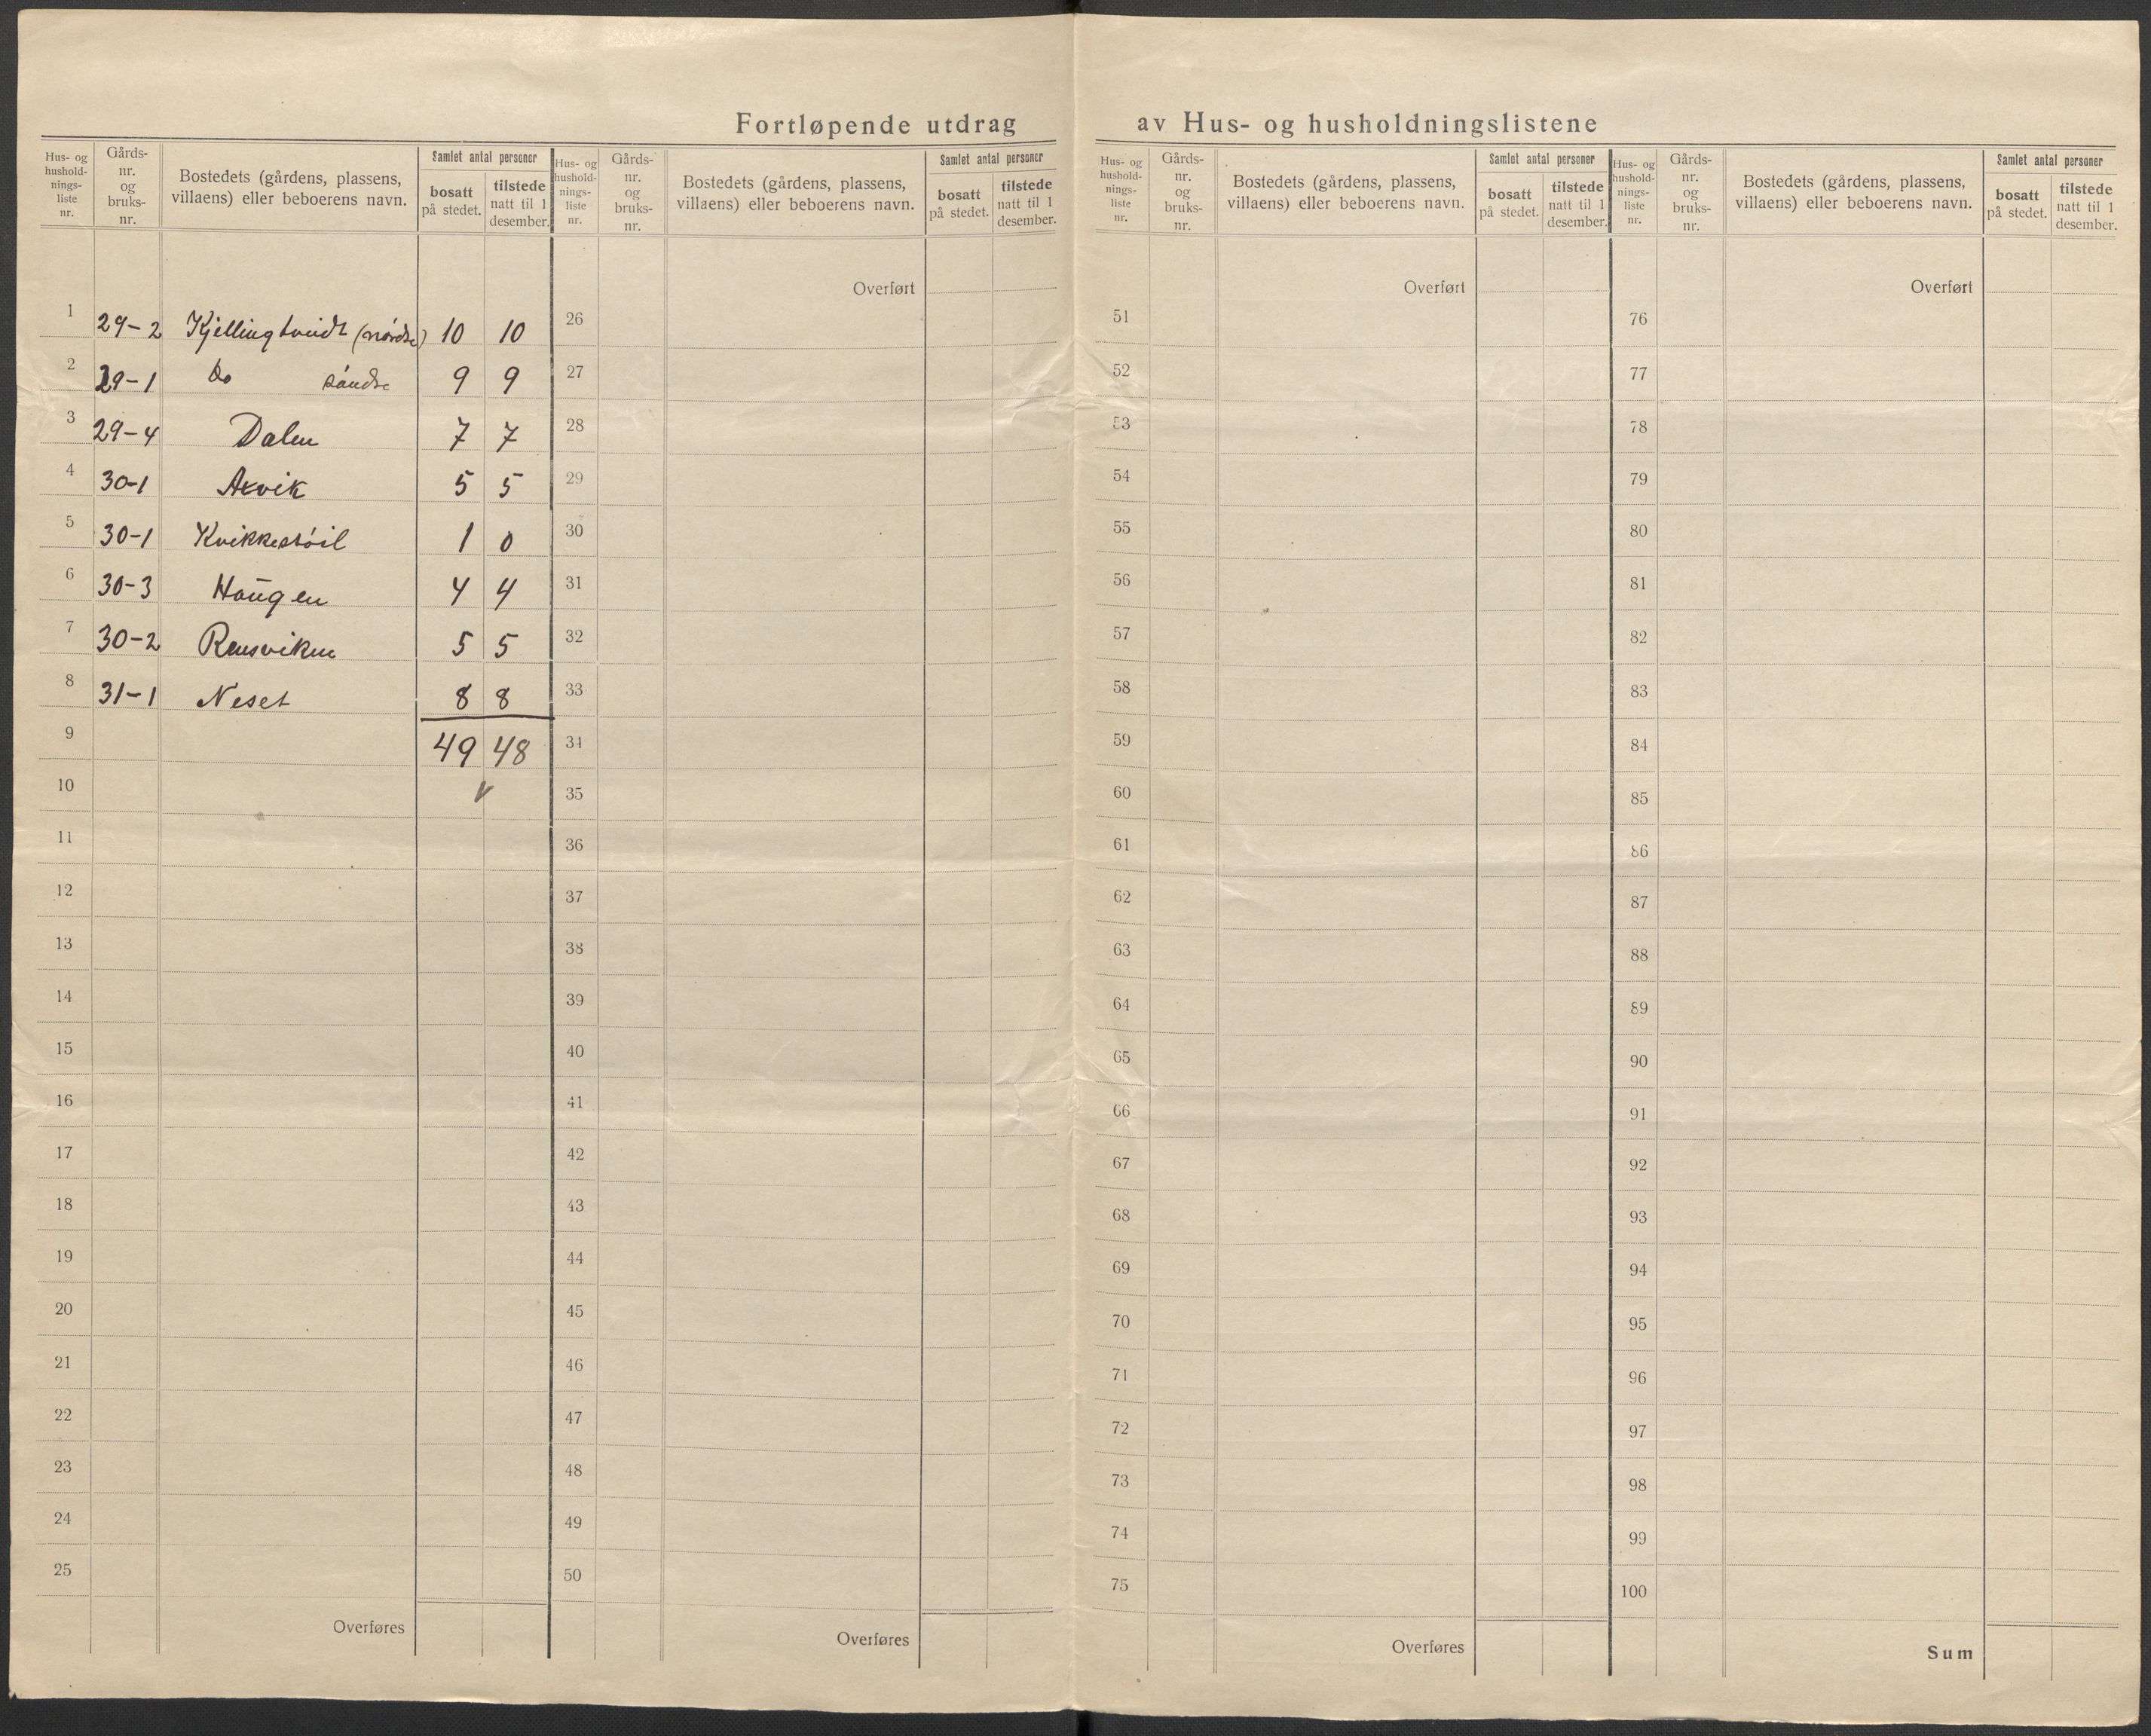 Fortløpende utdrag av Hus- og husholdningslistene
Hus- og hushold- nings- liste nr.
Gårds- nr. og bruks- nr.
Bostedets (gårdens, plassens, villaens) eller beboerens navn.
Samlet antal personer
bosatt på stedet.
tilstede natt til 1 desember.
1 29-2 Kjellingtveidt (nørdre) 10 10
2 29-1 Do søndre 9 9
3 29-4 Dalen 7 7
4 30-1 Axvik 5 5
5 30-1 Kvikkestøil 1 0
6 30-3 Haugen 4 4
7 30-2 Rensviken 5 5
8 31-1 Neset 8 8
9 49 48
10
11
12
13
14
15
16
17
18
19
20
21
22
23
24
25
Overføres
Hus- og hushold- nings- liste nr.
Gårds- nr. og bruks- nr.
Bostedets (gårdens, plassens, villaens) eller beboerens navn.
Samlet antal personer
bosatt på stedet.
tilstede natt til 1 desember.
Overført
26
27
28
29
30
31
32
33
34
35
36
37
38
39
40
41
42
43
44
45
46
47
48
49
50
Overføres
Hus- og hushold- nings- liste nr.
Gårds- nr. og bruks- nr.
Bostedets (gårdens, plassens, villaens) eller beboerens navn.
Samlet antal personer
bosatt på stedet.
tilstede natt til 1 desember.
Overført
51
52
53
54
55
56
57
58
59
60
61
62
63
64
65
66
67
68
69
70
71
72
73
74
75
Overføres
Hus- og hushold- nings- liste nr.
Gårds- nr. og bruks- nr.
Bostedets (gårdens, plassens, villaens) eller beboerens navn.
Samlet antal personer
bosatt på stedet.
tilstede natt til 1 desember.
Overført
76
77
78
79
80
81
82
83
84
85
86
87
88
89
90
91
92
93
94
95
96
97
98
99
100
Sum